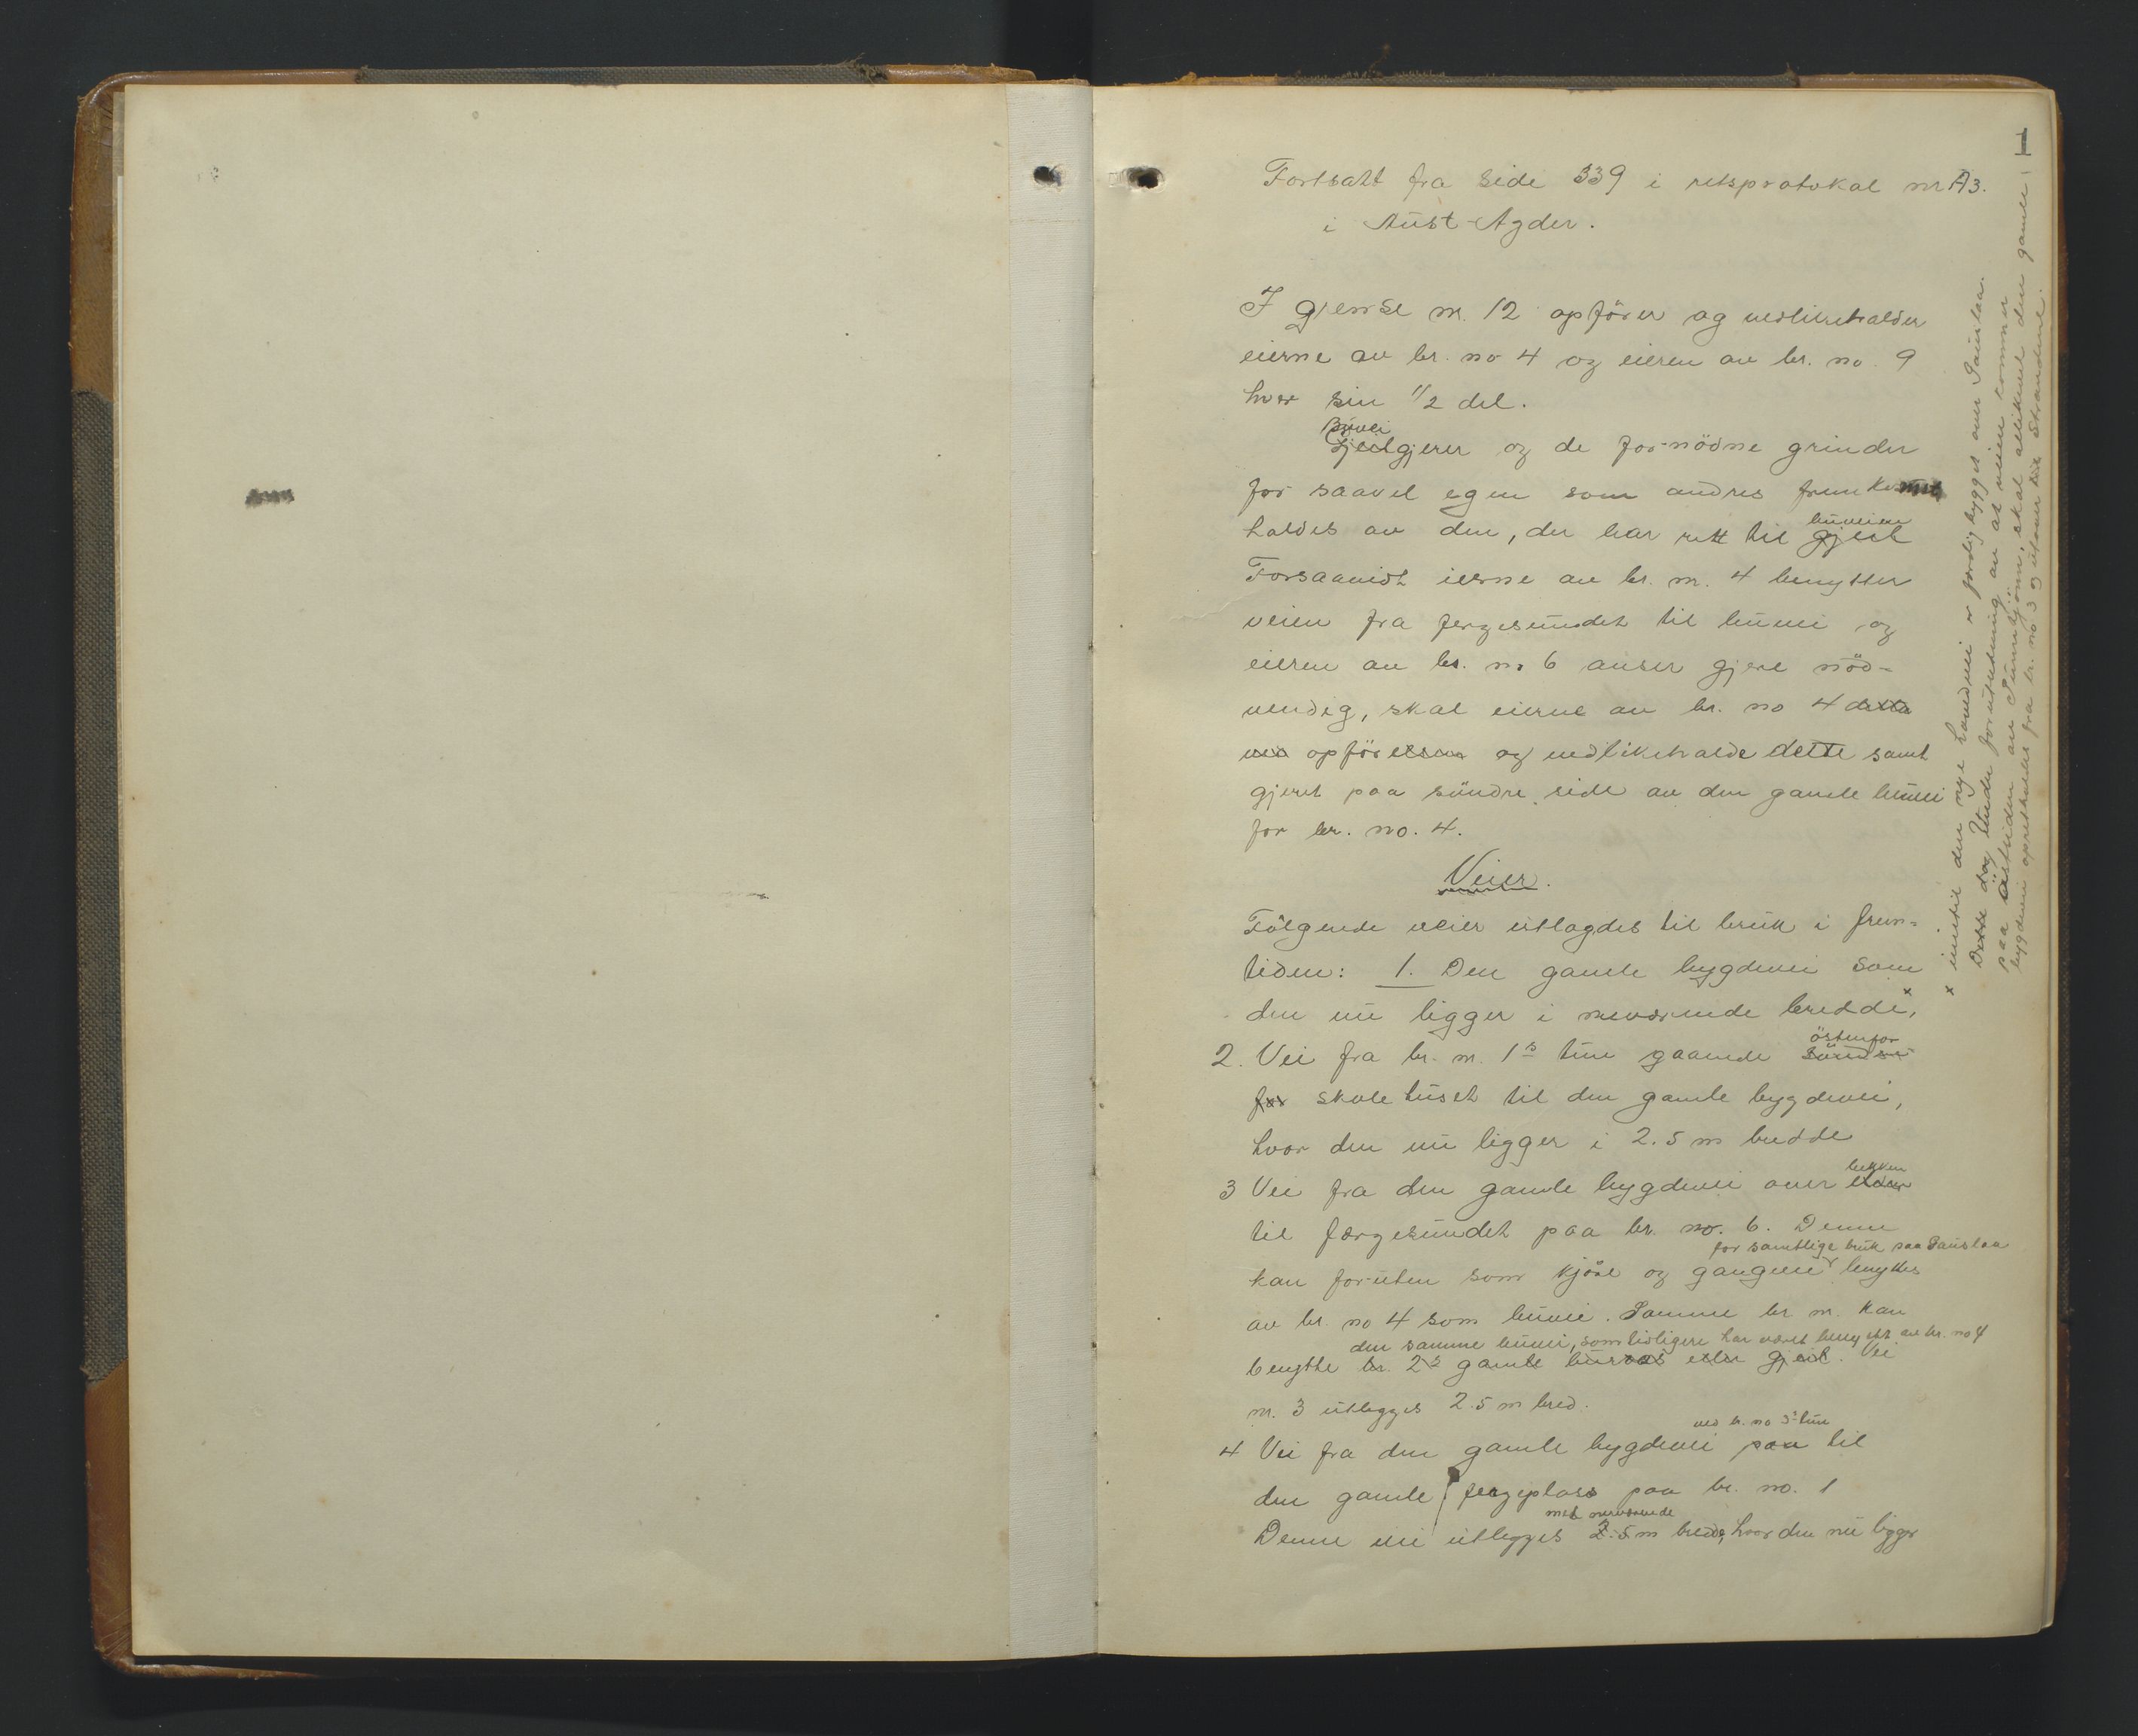 1
Fortsatt fra side 339 i retsprotokol nr A3.
i Aust-Agder.
I gjerde nr. 12 opförer og vedlikeholder
eierne av br. no 4 og eieren av br. no 9
hver sin 1/2 del.
Buvei
Gjeilgjerer og de fornödne grinder
for saavel egen som andres
holdes av den, der har rett til gjeil
buveien
Forsaavidt eierne av br. nr. 4 benytter
veien fra fergesundet til buvei og
eieren av br. no 6 anser gjere nöd-
vendig, skal eierne av br. no 4 dette
opföre og vedlikeholde dette samt
gjeret paa söndre side av den gamle buvei
for br. no. 4.
Veier.
Fölgende veier utlagdes til bruk i frem-
tiden: 1. Den gamle bygdevei som
den nu ligger i nuværende bredde x,
östenfor
2. Vei fra br. nr. 1s tun gaaende söndre
for skolehuset til den gamle bygdevei,
hvor den nu ligger i 2.5 m bredde
bekken
3 Vei fra den gamle bygdevei over elven
til færgesundet paa br. no. 6. Denne
for samtlige bruk paa Sauslaa
kan foruten som kjöre og gangvei benyttes
av br. no 4 som buvei. Samme br nr. kan
den samme buvei, som tidligere har været benyttet av br. no 4
benytte br. 2s gamle eller gjeil. Vei
nr. 3 utlegges 2.5 m bred.
ved br. no 3s tun
4 Vei fra den gamle bygdevei paa til
den gamle fergeplass paa br. no. 1
med nuværende
Denne vei utlegges 2.5 m bredde, hvor den nu ligger
x indtil den nye hovedvei er færdig bygget over Sauslaa.
Dette dog under forutsætning av at veien kommer
paa östsiden av Tunntjönn, skal allikevel den gamle
bygdevei opretholdes fra br. no 3 og utover til Strandene.